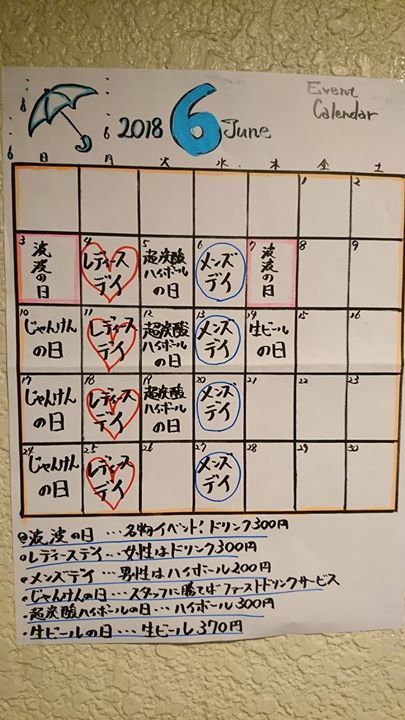 Event
Calendar
2018 6 June
日 月 火 水 木 金 土
1 2
3 4 5 6 7 8 9
波波の日
レディースデイ
超炭酸ハイボールの日
メンズデイ
波波の日
10 11 12 13 14 15 16
じゃんけんの日
レディースデイ
超炭酸ハイボールの日
メンズデイ
生ビールの日
17 18 19 20 21 22 23
じゃんけんの日
レディースデイ
超炭酸ハイボールの日
メンズデイ
24 25 26 27 28 29 30
じゃんけんの日
レディースデイ
メンズデイ
波波の日…名物イベント!ドリンク300円
・レディースデイ…女性はドリンク300円
・メンズデイ…男性はハイボール200円
・じゃんけんの日…スタッフに勝てばファーストドリンクサービス
・超炭酸ハイボールの日…ハイボール300円
・生ビールの日…生ビール370円